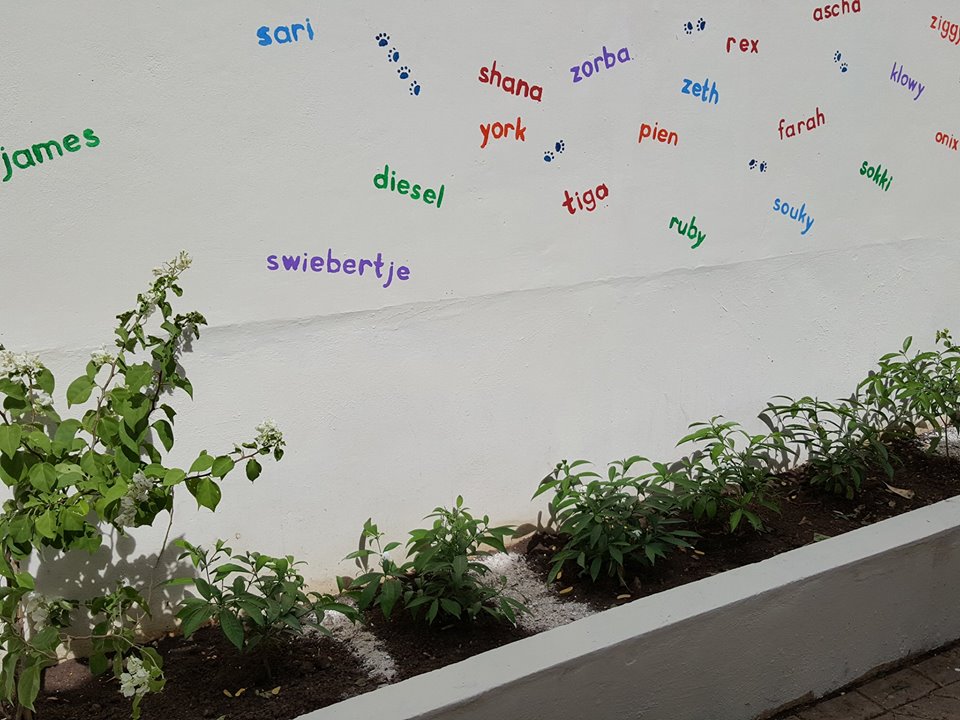 sari
ascha
ziggy
rex
shana
zorba
zeth
klowy
james
york
pien
farah
onix
diesel
tiga
sokki
ruby
souky
swiebertje